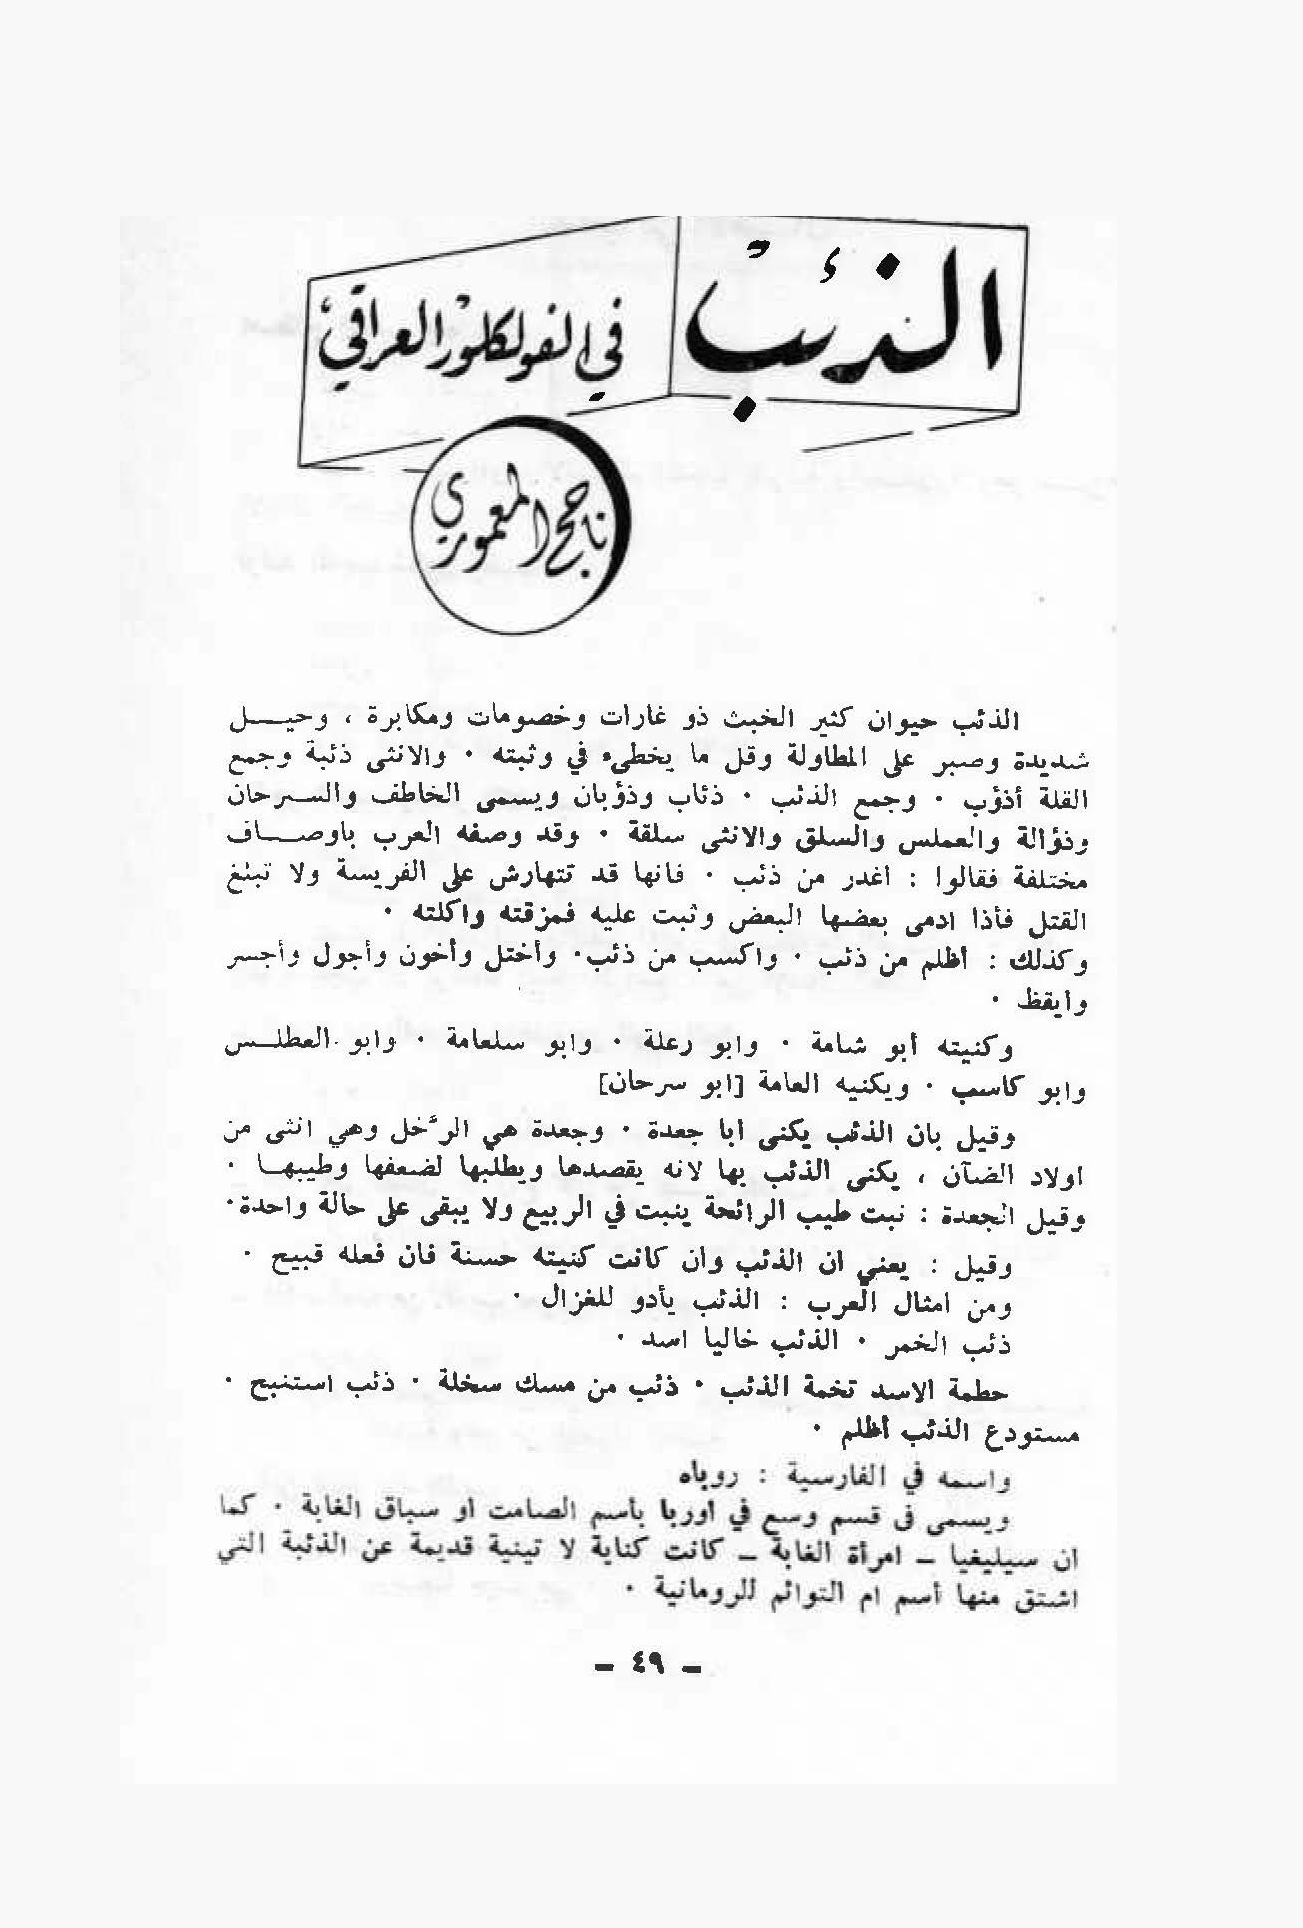 الذئب
في الفولكلور العراقي
ناجح المعموري
الذئب حيوان كثير الخبث ذو غارات وخصومات ومكابرة ، وحيــل
شديدة وصبر على المطاولة وقل ما يخطىء في وثبته ٠ والانثى ذئبة وجمع
القلة أذؤب ٠ وجمع الذئب ٠ ذئاب وذؤبان ويسمى الخاطف والسرحان
وذؤالة والعملس والسلق والانثى سلقة ٠ وقد وصفه العرب باوصــاف
مختلفة فقالوا : اغدر من ذئب ٠ فانها قد تتهارش على الفريسة ولا تبلغ
القتل فأذا ادمى بعضها البعض وثبت عليه فمزقته واكلته ٠
وكذلك : أظلم من ذئب ٠ واكسب من ذئب٠ وأختل وأخون وأجول وأجسر
وأيقظ ٠
وكنيته أبو شامة ٠ وابو رعلة ٠ وابو سلعامة ٠ وابو العطلــس
وابو كاسب ٠ ويكنيه العامة [ابو سرحان]
وقيل بان الذئب يكنى أبا جعدة ٠ وجعدة هي الرخل وهي انثى من
اولاد الضآن ، يكنى الذئب بها لانه يقصدها ويطلبها لضعفها وطيبهـا ٠
وقيل الجعدة : نبت طيب الرائحة ينبت في الربيع ولا يبقى على حالة واحدة٠
وقيل : يعني ان الذئب وان كانت كنيته حسنة فان فعله قبيح ٠
ومن امثال العرب : الذئب يأدو للغزال ٠
ذئب الخمر ٠ الذئب خاليا اسد ٠
حطمة الاسد تخمة الذئب ٠ ذئب من مسك سخلة ٠ ذئب استنبح ٠
مستودع الذئب أظلم ٠
واسمه في الفارسية : روباه
ويسمى في قسم وسع في اوربا بأسم الصامت او سباق الغابة ٠ كما
ان سيليفيا – امرأة الغابة – كانت كناية لا تينية قديمة عن الذئبة التي
اشتق منها أسم ام التوائم للرومانية ٠
– ٤٩ –